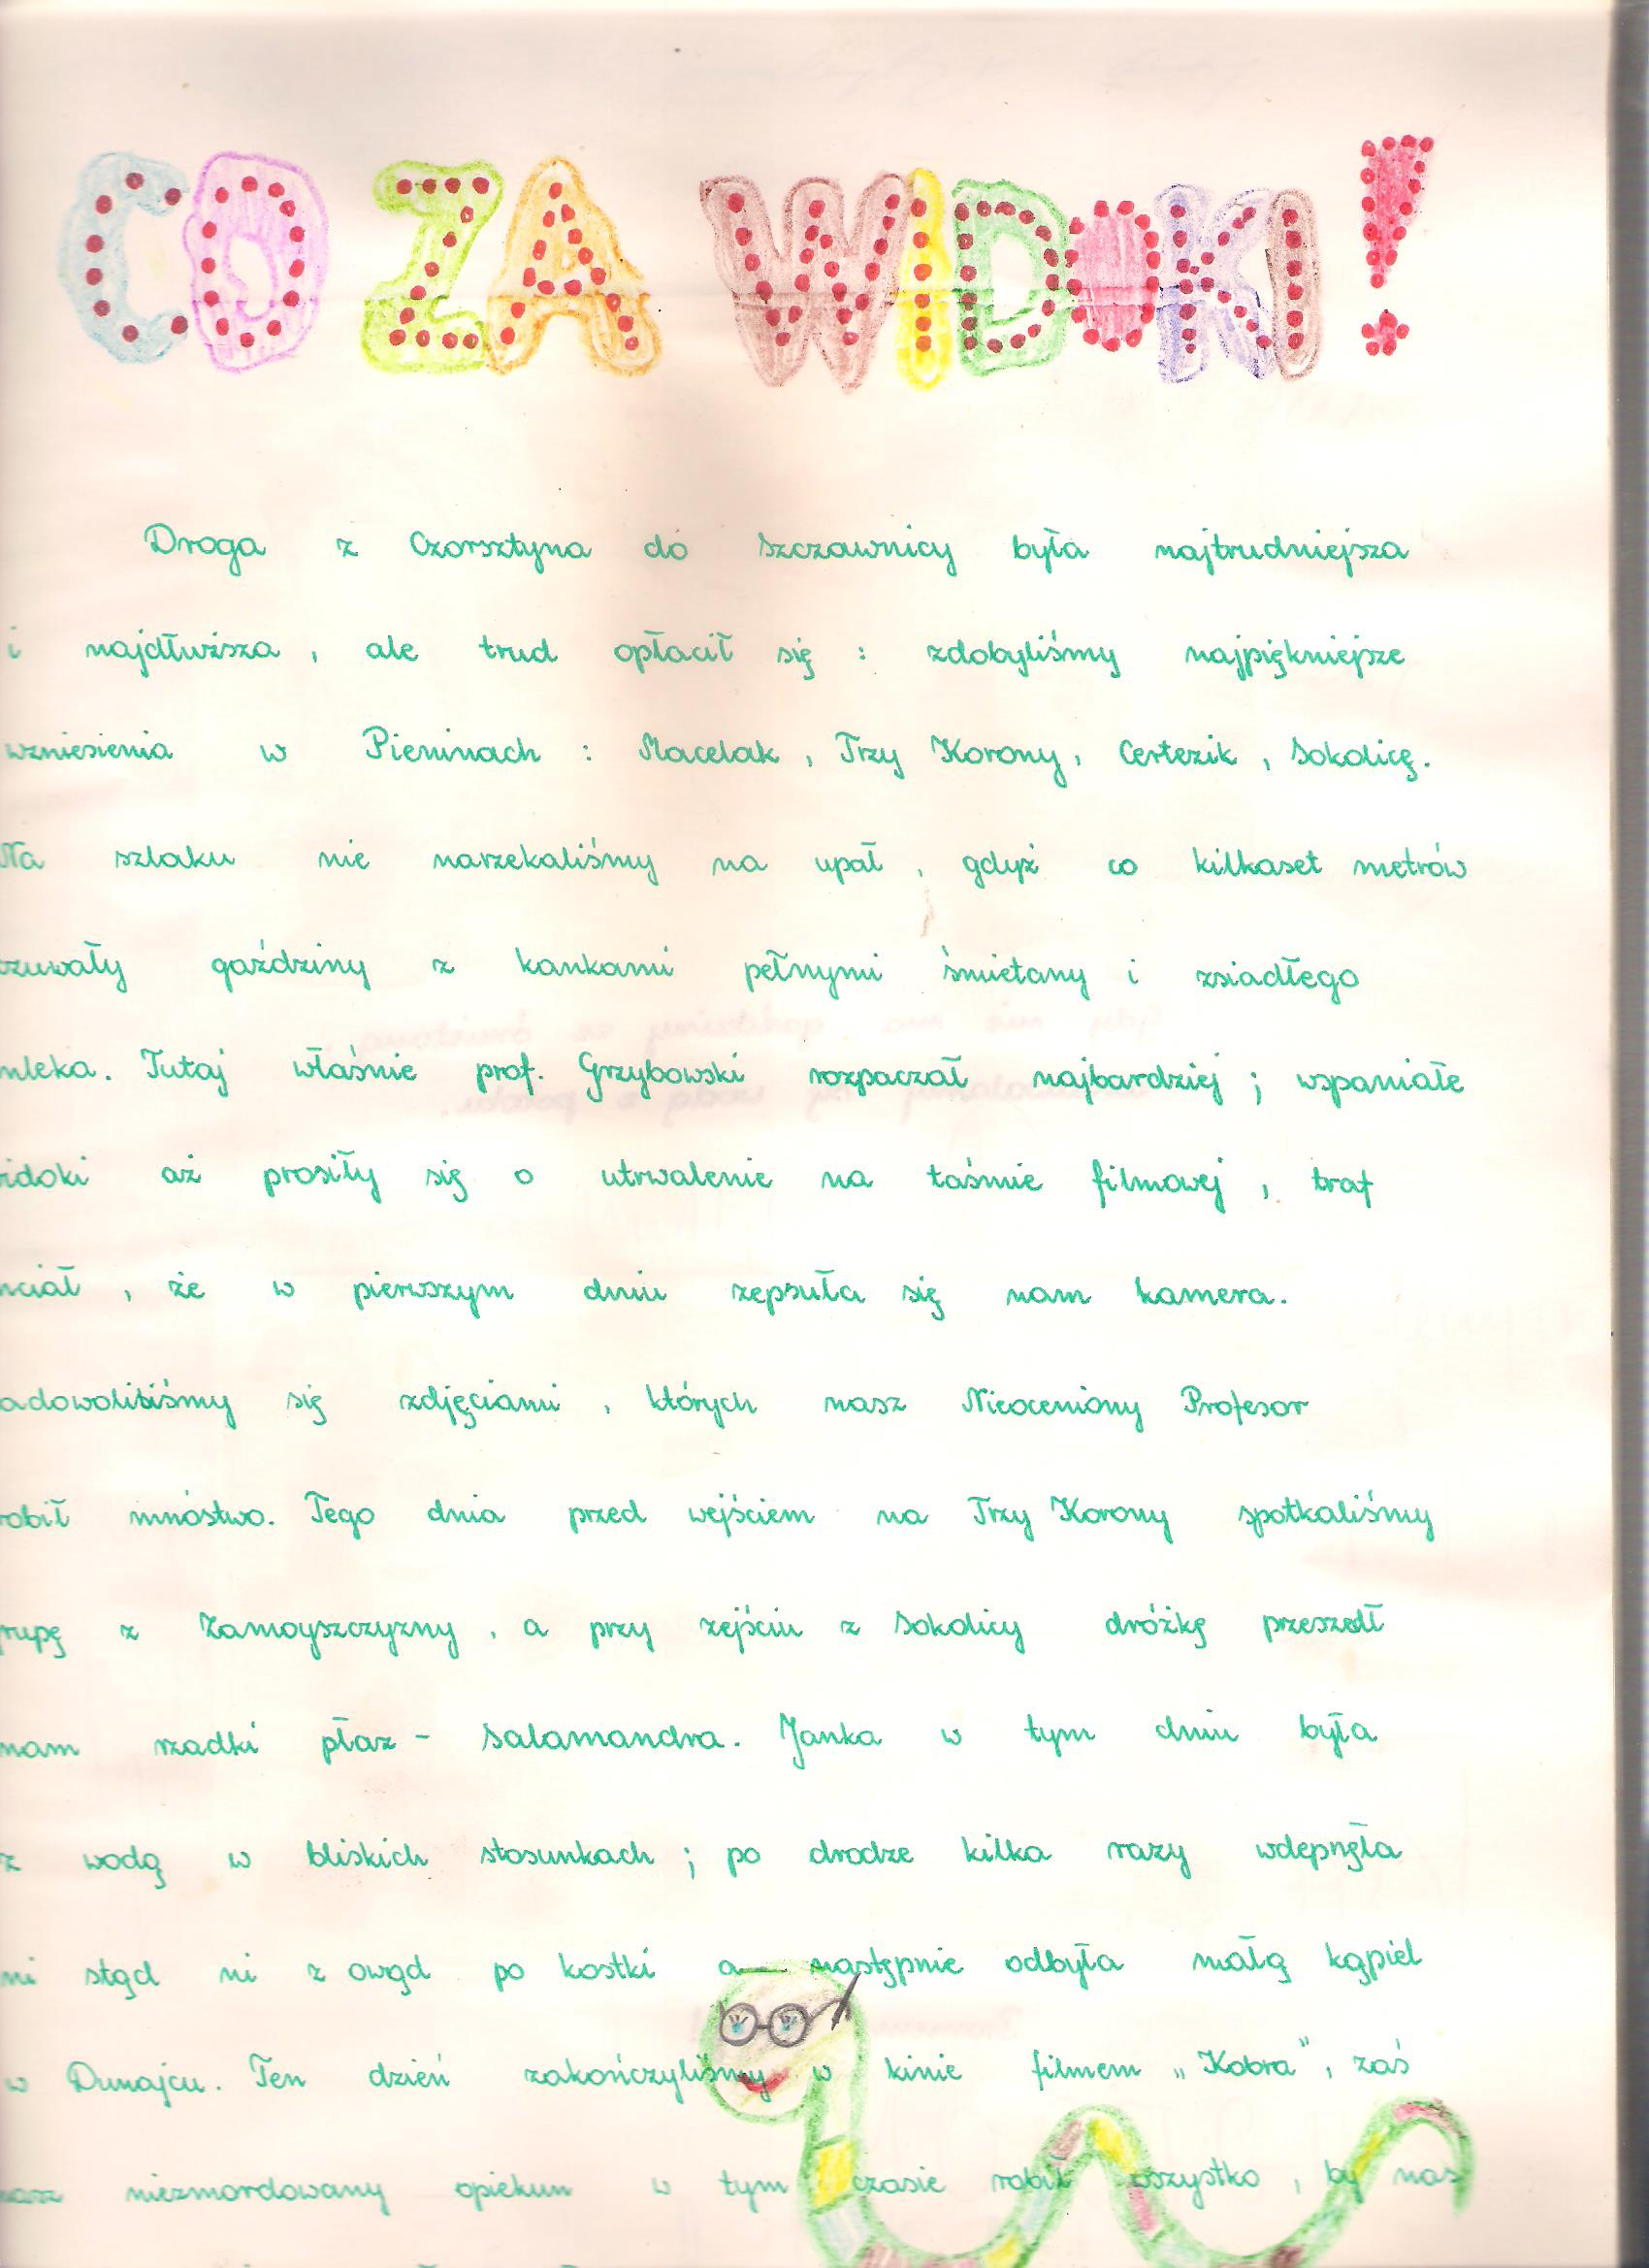 CO ZA WIDOKI!
Droga z Czorsztyna do Szczawnicy była najtrudniejsza
i najdłuższa, ale trud opłacił się : zdobyliśmy najpiękniejsze
wzniesienia w Pieninach : Macelak, Trzy Korony, Certezik, Sokolicę.
Na szlaku nie narzekaliśmy na upał, gdyż co kilkaset metrów
czuwały gaździny z kankami pełnymi śmietany i zsiadłego
mleka. Tutaj właśnie prof. Grzybowski rozpaczał najbardziej ; wspaniałe
idoki aż prosiły się o utrwalenie na taśmie filmowej, traf
chciał, że w pierwszym dniu zepsuła się nam kamera.
adowoliliśmy się zdjęciami, których nasz Nieoceniony Profesor
robił mnóstwo. Tego dnia przed wejściem na Trzy Korony spotkaliśmy
rupę z Zamoyszczyzny, a przy zejściu z Sokolicy dróżkę przeszedł
nam rzadki płaz - salamandra. Janka w tym dniu była
z wodą w bliskich stosunkach ; po drodze kilka razy wdepnęła
ni stąd ni z owąd po kostki a następnie odbyła małą kąpiel
w Dunajcu. Ten dzień zakończyliśmy w kinie filmem „Kobra", zaś
nasz niezmordowany opiekun w tym czasie robił wszystko, by nas